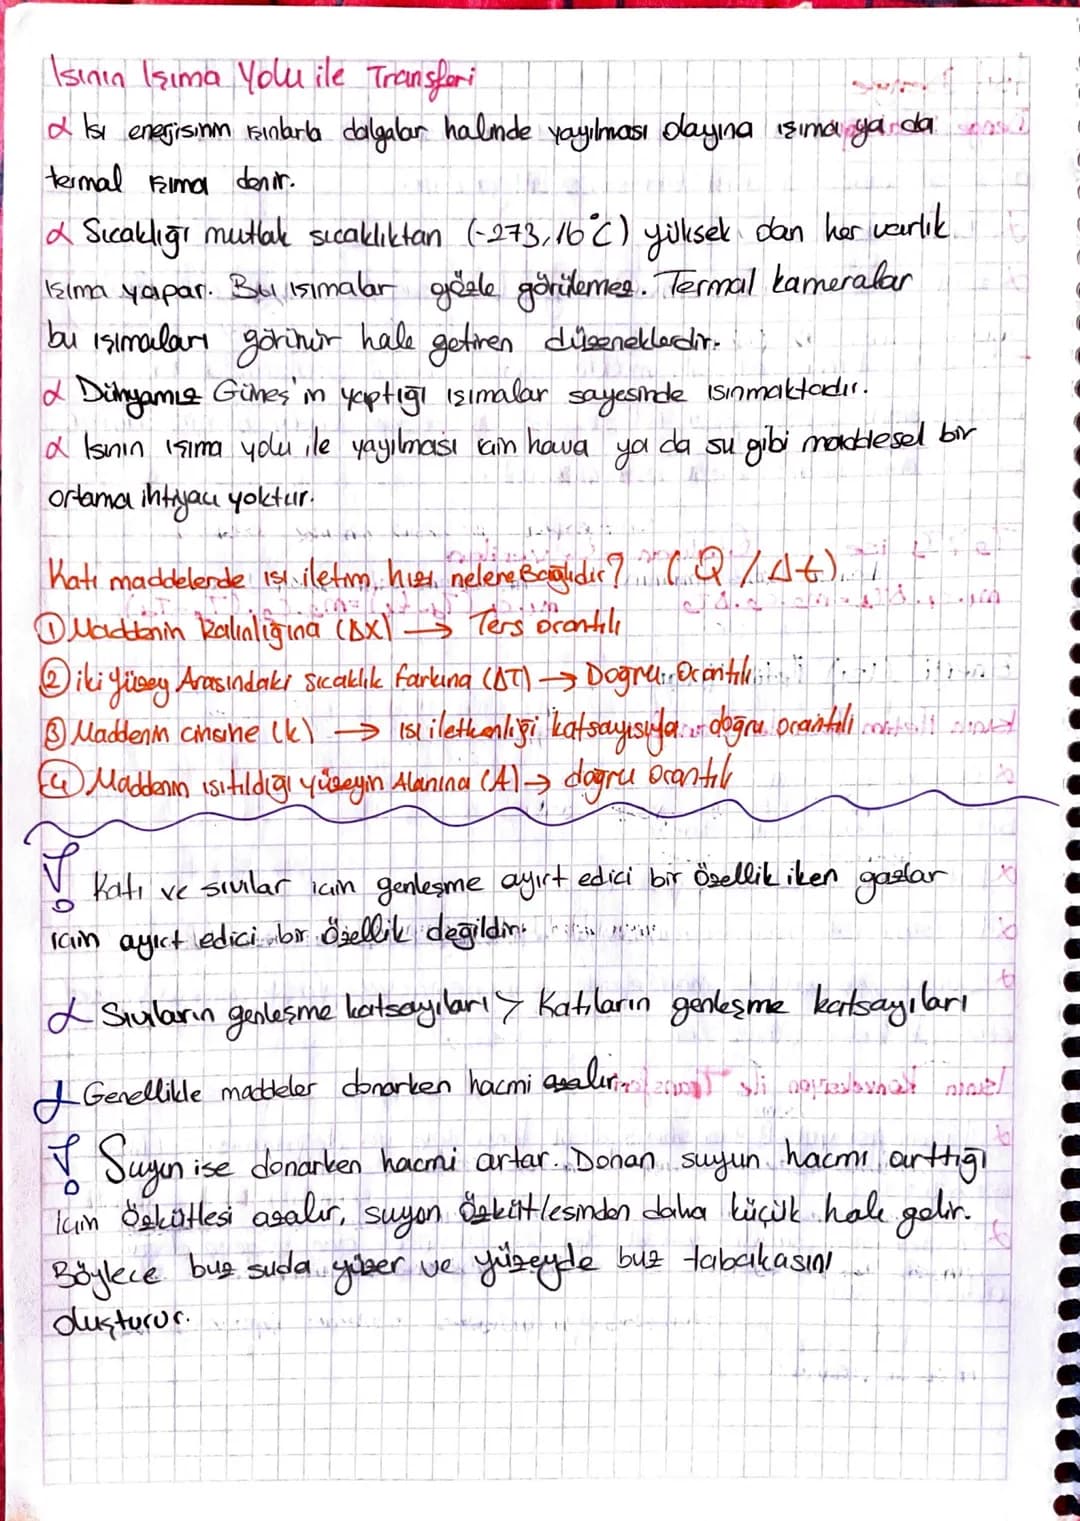 Isının Işıma Yolu ile Transferi
α Isı enerjisinin ışınlarla dalgalar halinde yayılması olayına ışıma ya da
termal ışıma denir.
α Sıcaklığı mutlak sıcaklıktan (-273,16°C) yüksek olan her varlık
ışıma yapar. Bu ışımalar gözle görülemez. Termal kameralar
bu ışımaları görünür hale getiren düzeneklerdir.
α Dünyamız Güneş'in yaptığı ışımalar sayesinde ısınmaktadır.
α Isının ışıma yolu ile yayılması için hava ya da su gibi maddesel bir
ortama ihtiyacı yoktur.
Katı maddelerde ısı iletim hızı nelere Bağlıdır? (Q/Δt)
① Maddenin kalınlığına (ΔX) → Ters orantılı
② iki yüzey Arasındaki sıcaklık farkına (ΔT) → Doğru Orantılı
③ Maddenin cinsine (k) → ısı iletkenliği katsayısıyla doğru orantılı
④ Maddenin ısıtıldığı yüzeyin Alanına (A) → doğru orantılı
! Katı ve sıvılar için genleşme ayırt edici bir özellik iken gazlar
için ayırt edici bir özellik değildir.
α Sıvıların genleşme katsayıları > Katıların genleşme katsayıları
α Genellikle maddeler donarken hacmi azalır.
! Suyun ise donarken hacmi artar. Donan suyun hacmi arttığı
için özkütlesi azalır, suyun özkütlesinden daha küçük hale gelir.
Böylece buz suda yüzer ve yüzeyde buz tabakasını
oluşturur.